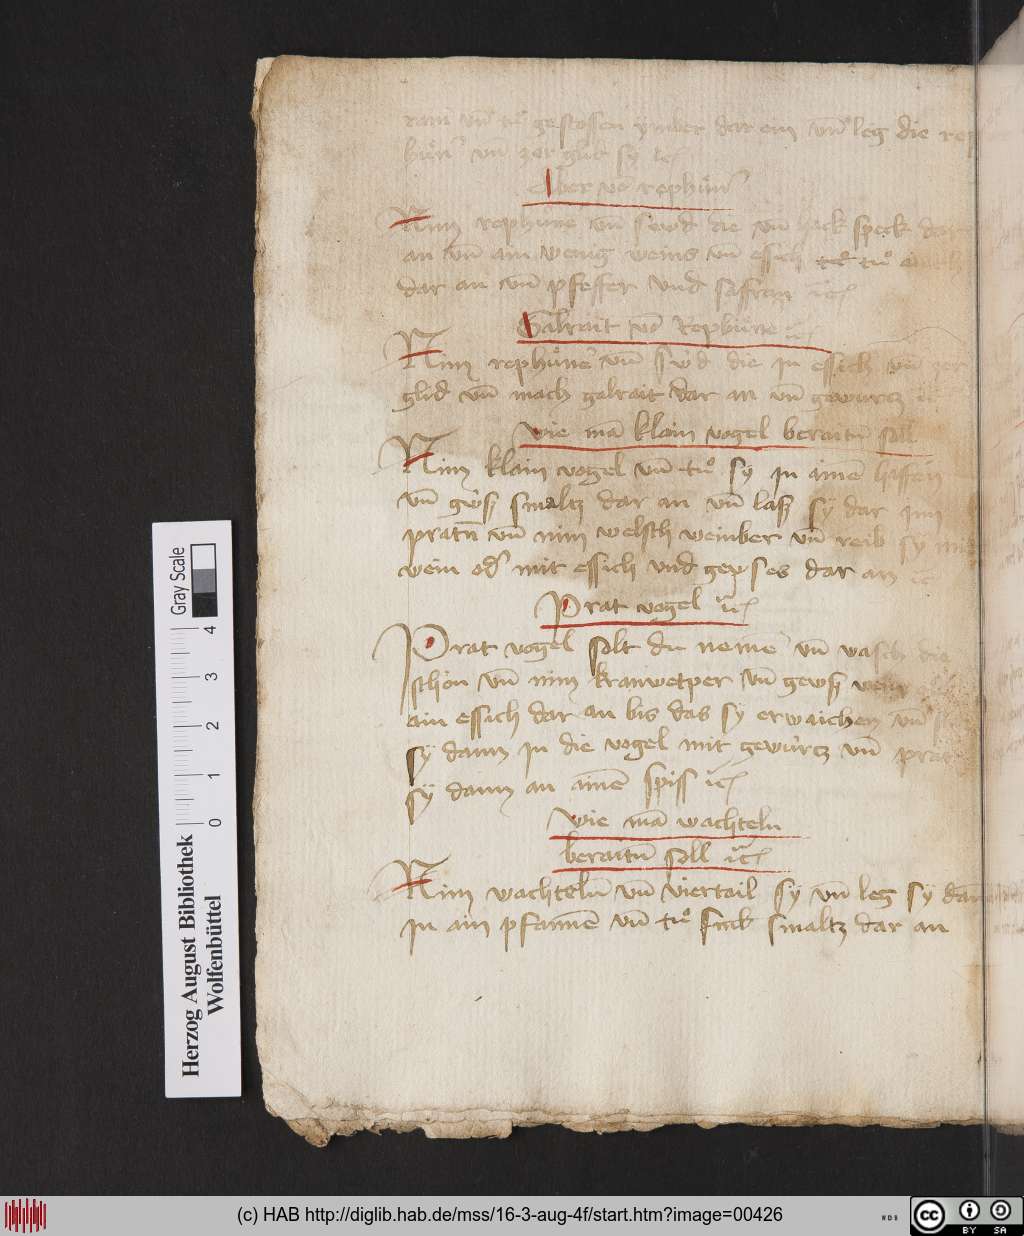 vn̄ tuͦ gestossen ymber dar ein vn̄ leg die rep
huͤnʼ vn̄ zer glid sy ⁊c
Aber vō rephuͤnʼ
Nim rephuͤne vn̄ sewd die vn̄ hack speck dar
an vn̄ ain wenig weins vn̄ essich tuͦ
dar an vn̄ pfeffer vnd saffran ⁊c
Galrait vō Rephuͤne ⁊c
Nim rephuͤne vn̄ syd die In essich vn̄ zer
glid vn̄ mach galrait dar an vn̄ gewurtz ⁊c
wie mā klain vogel beraitn̄ sol
Nim klain vogel vn̄ tuͦ sy in ainē haffen
vn̄ gws smaltz dar an vn̄ lass sy dar inn
pratn̄ vn̄ nim welsch weinber vn̄ reib sy mit
wein odʼ mit essich vnd geps es dar an ⁊c
Prat vogel ⁊c
Prat vogel solt du nemē vn̄ wasch die
schon vn̄ nim kranwetper vn̄ gews
ain essich dar an bis das sy erwaichen vn̄
sy dann in die vogel mit gewuͤrtz vn̄ prat
sy dann an ainē spiss ⁊c
wie mā wachteln
beraitn̄ soll ⁊c
Nim wachteln̄ vn̄ viertail sy vn̄ leg sy dann
In ain pfannē vn̄ tuͦ smaltz dar an
Gray Scale
4 3 2 1 0
Herzog August Bibliothek
Wolfenbüttel
(c) HAB http://diglib.hab.de/mss/16-3-aug-4f/start.htm?image=00426
WDB
cc
BY SA